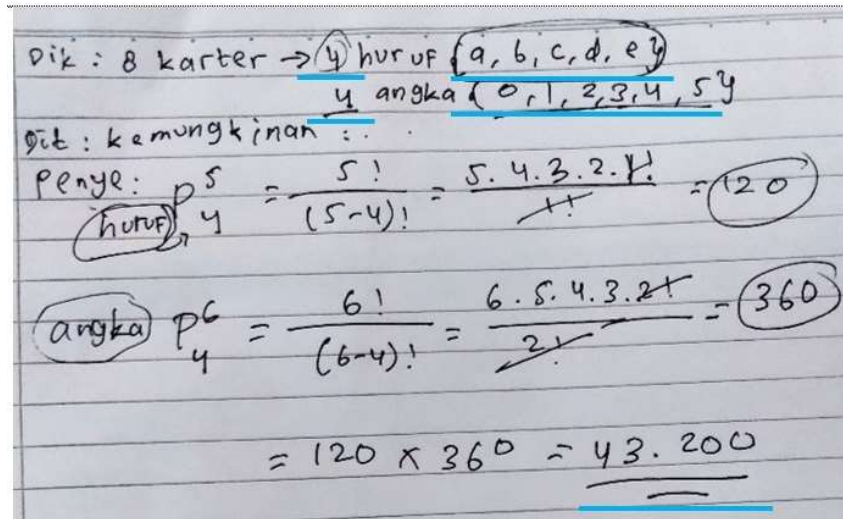 Dik : 8 karter → 4 huruf {a, b, c, d, e}
4 angka {0, 1, 2, 3, 4, 5}
Dit : kemungkinan : . .
Penye : huruf P 5 4 = 5! / (5-4)! = 5. 4. 3. 2. 1! / 1! = 120
angka P 6 4 = 6! / (6-4)! = 6. 5. 4. 3. 2! / 2! = 360
= 120 x 360 = 43. 200